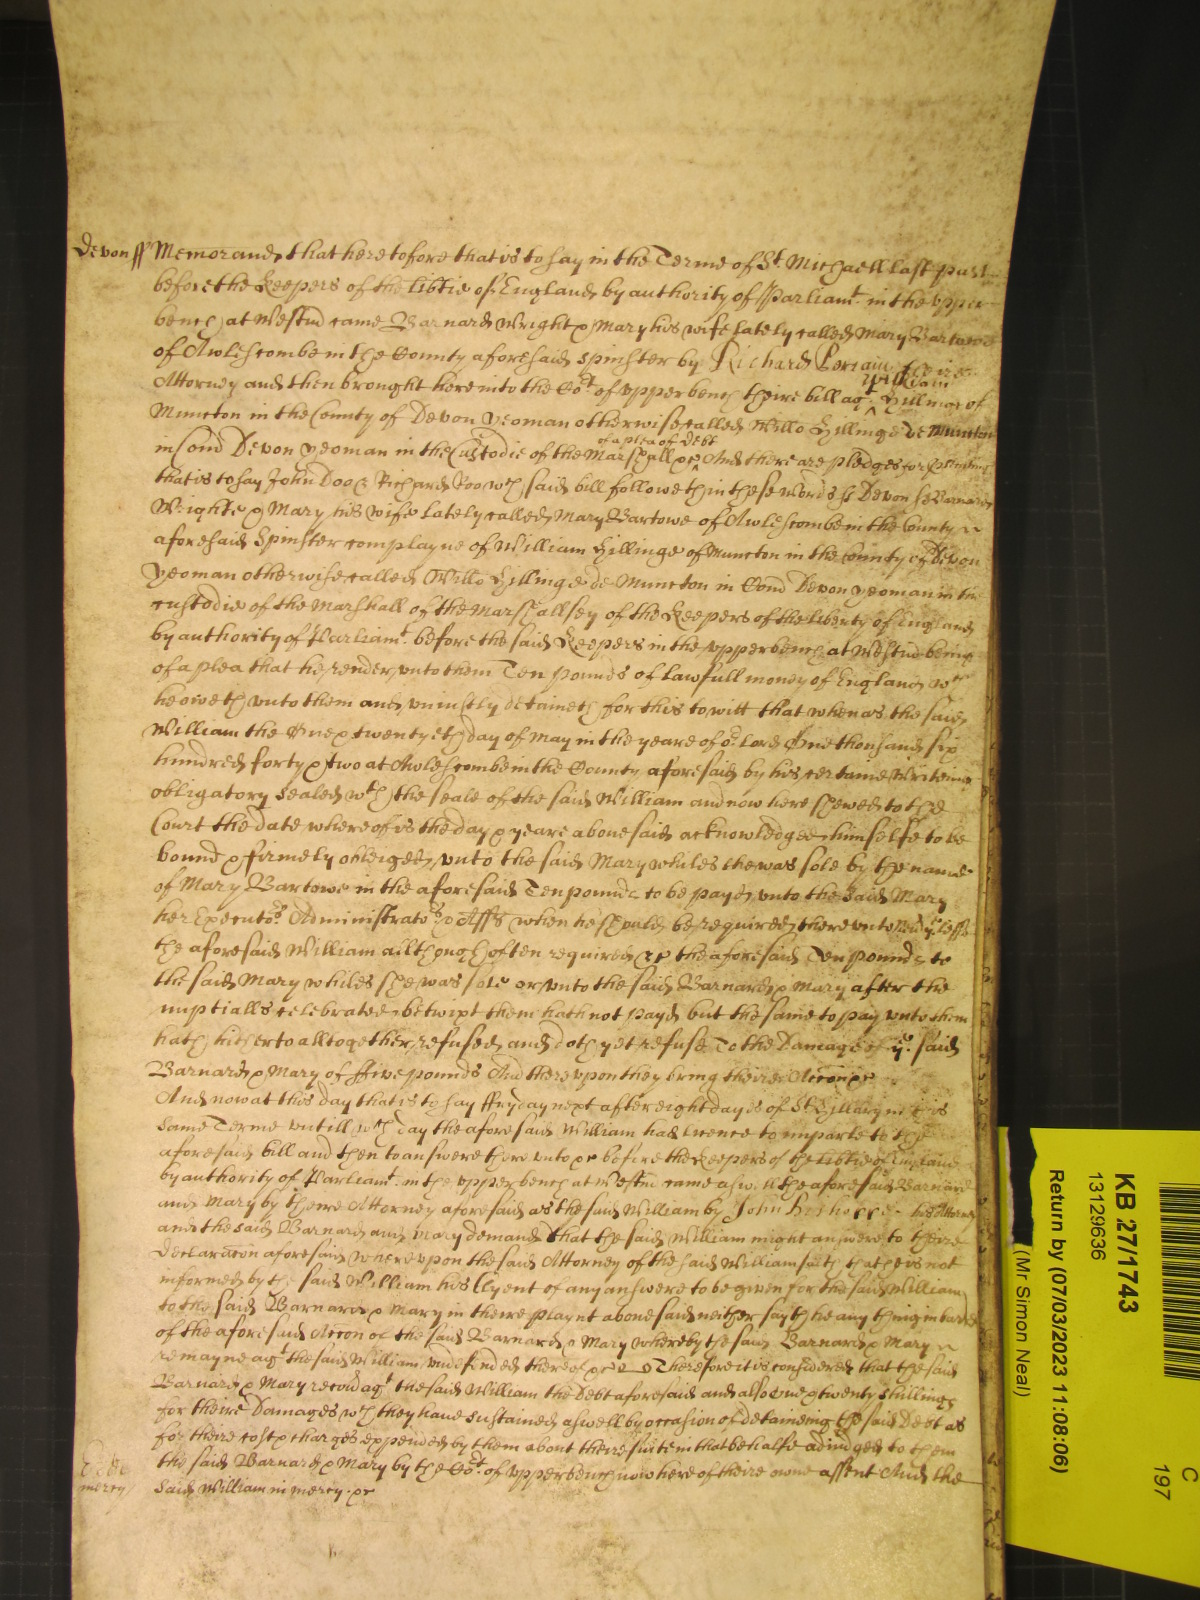 Devon ss Memorand that heretofore that is to say in the Terme of St. Michaell last past
before the Keepers of the libtie of England by authority of Parliamt. in the upper
bench at Westm came Barnard Wright & Mary his wife lately called Mary Bartowe
of Awlescombe in the County aforesaid Spinster by Richard theire
William
Attorney and then brought here into the Cort of upper bench theire bill agt. Hillinge of
Muncton in the County of Devon yeoman otherwise called Willo Hillinge de Muncton
of a plea of Debt
in Comd Devon yeoman in the Custodie of the Marshall &c And there are pledges for
that is to say John Doo & Richard Roo wch said bill followeth in these words ss Devon ss Barnard
Wrighte & Mary his wife lately called Mary Bartowe of Awlescombe in the County
aforesaid Spinster complayne of William Hillinge of Muncton in the County of Devon
yeoman otherwise called Willo Hillinge de Muncton in Comd Devon yeoman in the
custodie of the Marshall of the Marshallsey of the Keepers of the liberty of England
by authority of Parliamt. before the said Keepers in the upper bench at Westm being
of a plea that he render unto them Ten pounds of lawfull money of England wch
he oweth unto them and uniustly detaineth for this to witt that whenas the said
William the One & twentyeth day of May in the yeare of or. Lord One thousand six
hundred forty & two at Awlescombe in the County aforesaid by his certaine Writeing
obligatory sealed wth the seale of the said William and now here shewed to the
Court the date whereof is the day & yeare abovesaid acknowledged himselfe to be
bound & firmely obleiged unto the said Mary whiles she was sole by the name
of Mary Bartowe in the aforesaid Ten pounds to be payd unto the said Mary
her Executors Administrators & Asss when he should be required thereunto
the aforesaid William allthough often required &c the aforesaid Ten pounds to
the said Mary whiles she was sole or unto the said Barnard & Mary after the
nuptialls celebrated betwixt them hath not payd but the same to pay unto them
hath hitherto alltogether refused and doth yet refuse To the Damage of ye. said
Barnard & Mary of ffive pounds And thereupon they bring theire Accon &c
And now at this day that is to say ffryday next after eight dayes of St Hillary in this
same Terme untill wch day the aforesaid William had licence to imparle to the
aforesaid bill and then to answere thereunto &c before the Keepers of the libtie of England
by authority of Parliamt. in the upper bench at Westm came aswell the aforesaid Barnard
and Mary by theire Attorney aforesaid as the said William by John his Attorney
and the said Barnard and Mary demand that the said William might answere to theire
declaracon aforesaid whereupon the said Attorney of the said William saith that he is not
informed by the said William his Clyent of any answere to be given for the said William
to the said Barnard & Mary in theire playnt abovesaid neither sayth he any thing in barre
of the aforesaid Accon of the said Barnard & Mary whereby the said Barnard & Mary
remayne agt the said William undefended thereof &c Therefore it is considered that the said
Barnard & Mary recovd agt the said William the Debt aforesaid and also one & twenty shillings
for theire Damages wch they have sustained aswell by occasion of detaineing the said Debt as
for theire costs & charges expended by them about theire suite in that behalfe adiudged to them
the said Barnard & Mary by the Cort. of upper bench now here of theire owne assent And the
mercy said William in mercy &c
KB 27/1743
13129636
Return by (07/03/2023 11:08:06)
(Mr Simon Neal)
C
197